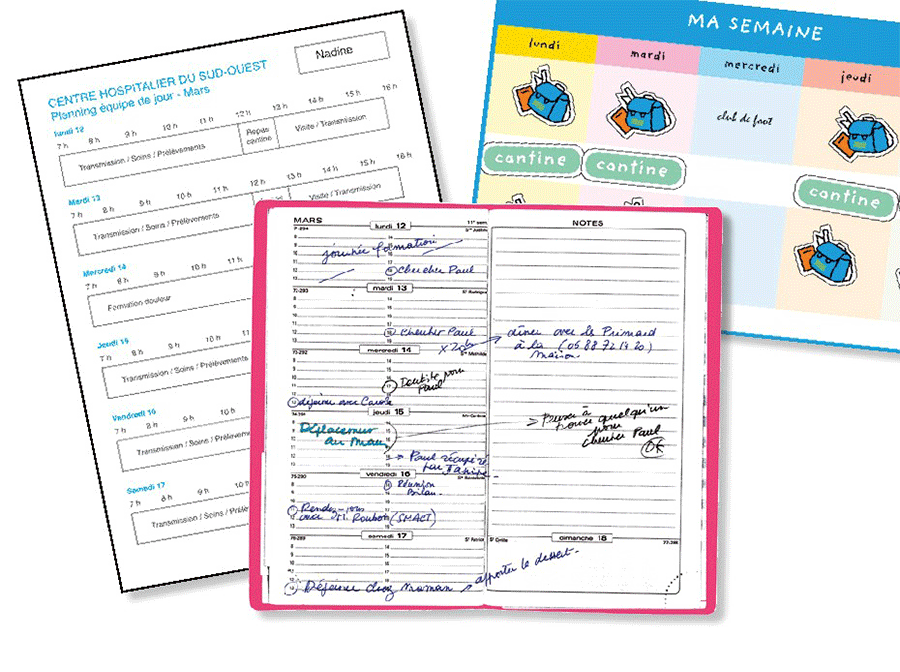 CENTRE HOSPITALIER DU SUD-OUEST
Planning équipe de jour - Mars
Nadine
lundi 12
7 h 8 h 9 h 10 h 11 h 12 h 13 h 14 h 15 h 16 h
Transmission / Soins / Prélèvements
Repas
cantine
Visite / Transmission
Mardi 13
7 h 8 h 9 h 10 h 11 h 12 h 13 h 14 h 15 h 16 h
Transmission / Soins / Prélèvements
Visite / Transmission
Mercredi 14
7 h 8 h 9 h 10 h
Formation douleur
Jeudi 15
7 h 8 h 9 h 10 h
Transmission / Soins / Prélèvements
Vendredi 16
7 h 8 h 9 h 10 h
Transmission / Soins / Prélèvem
Samedi 17
7 h 8 h 9 h 10 h
Transmission / Soins / Prélèv
MA SEMAINE
lundi
mardi
mercredi
jeudi
club de foot
cantine
cantine
cantine
MARS
lundi 12
11e sem
journée formation
chercher Paul
mardi 13
chercher Paul
mercredi 14
Dentiste pour
Paul
déjeuner avec Carole
jeudi 15
Déplacement
au Mans
Paul récupéré
par
vendredi 16
Réunion
Bilan
Rendez-vous
avec M. Roubon (SMACT)
samedi 17
Déjeuner chez maman
NOTES
dîner avec le
à la (05 88 72 14 20)
maison
Penser à
trouver quelqu'un
pour
chercher Paul
OK
dimanche 18
apporter le dessert